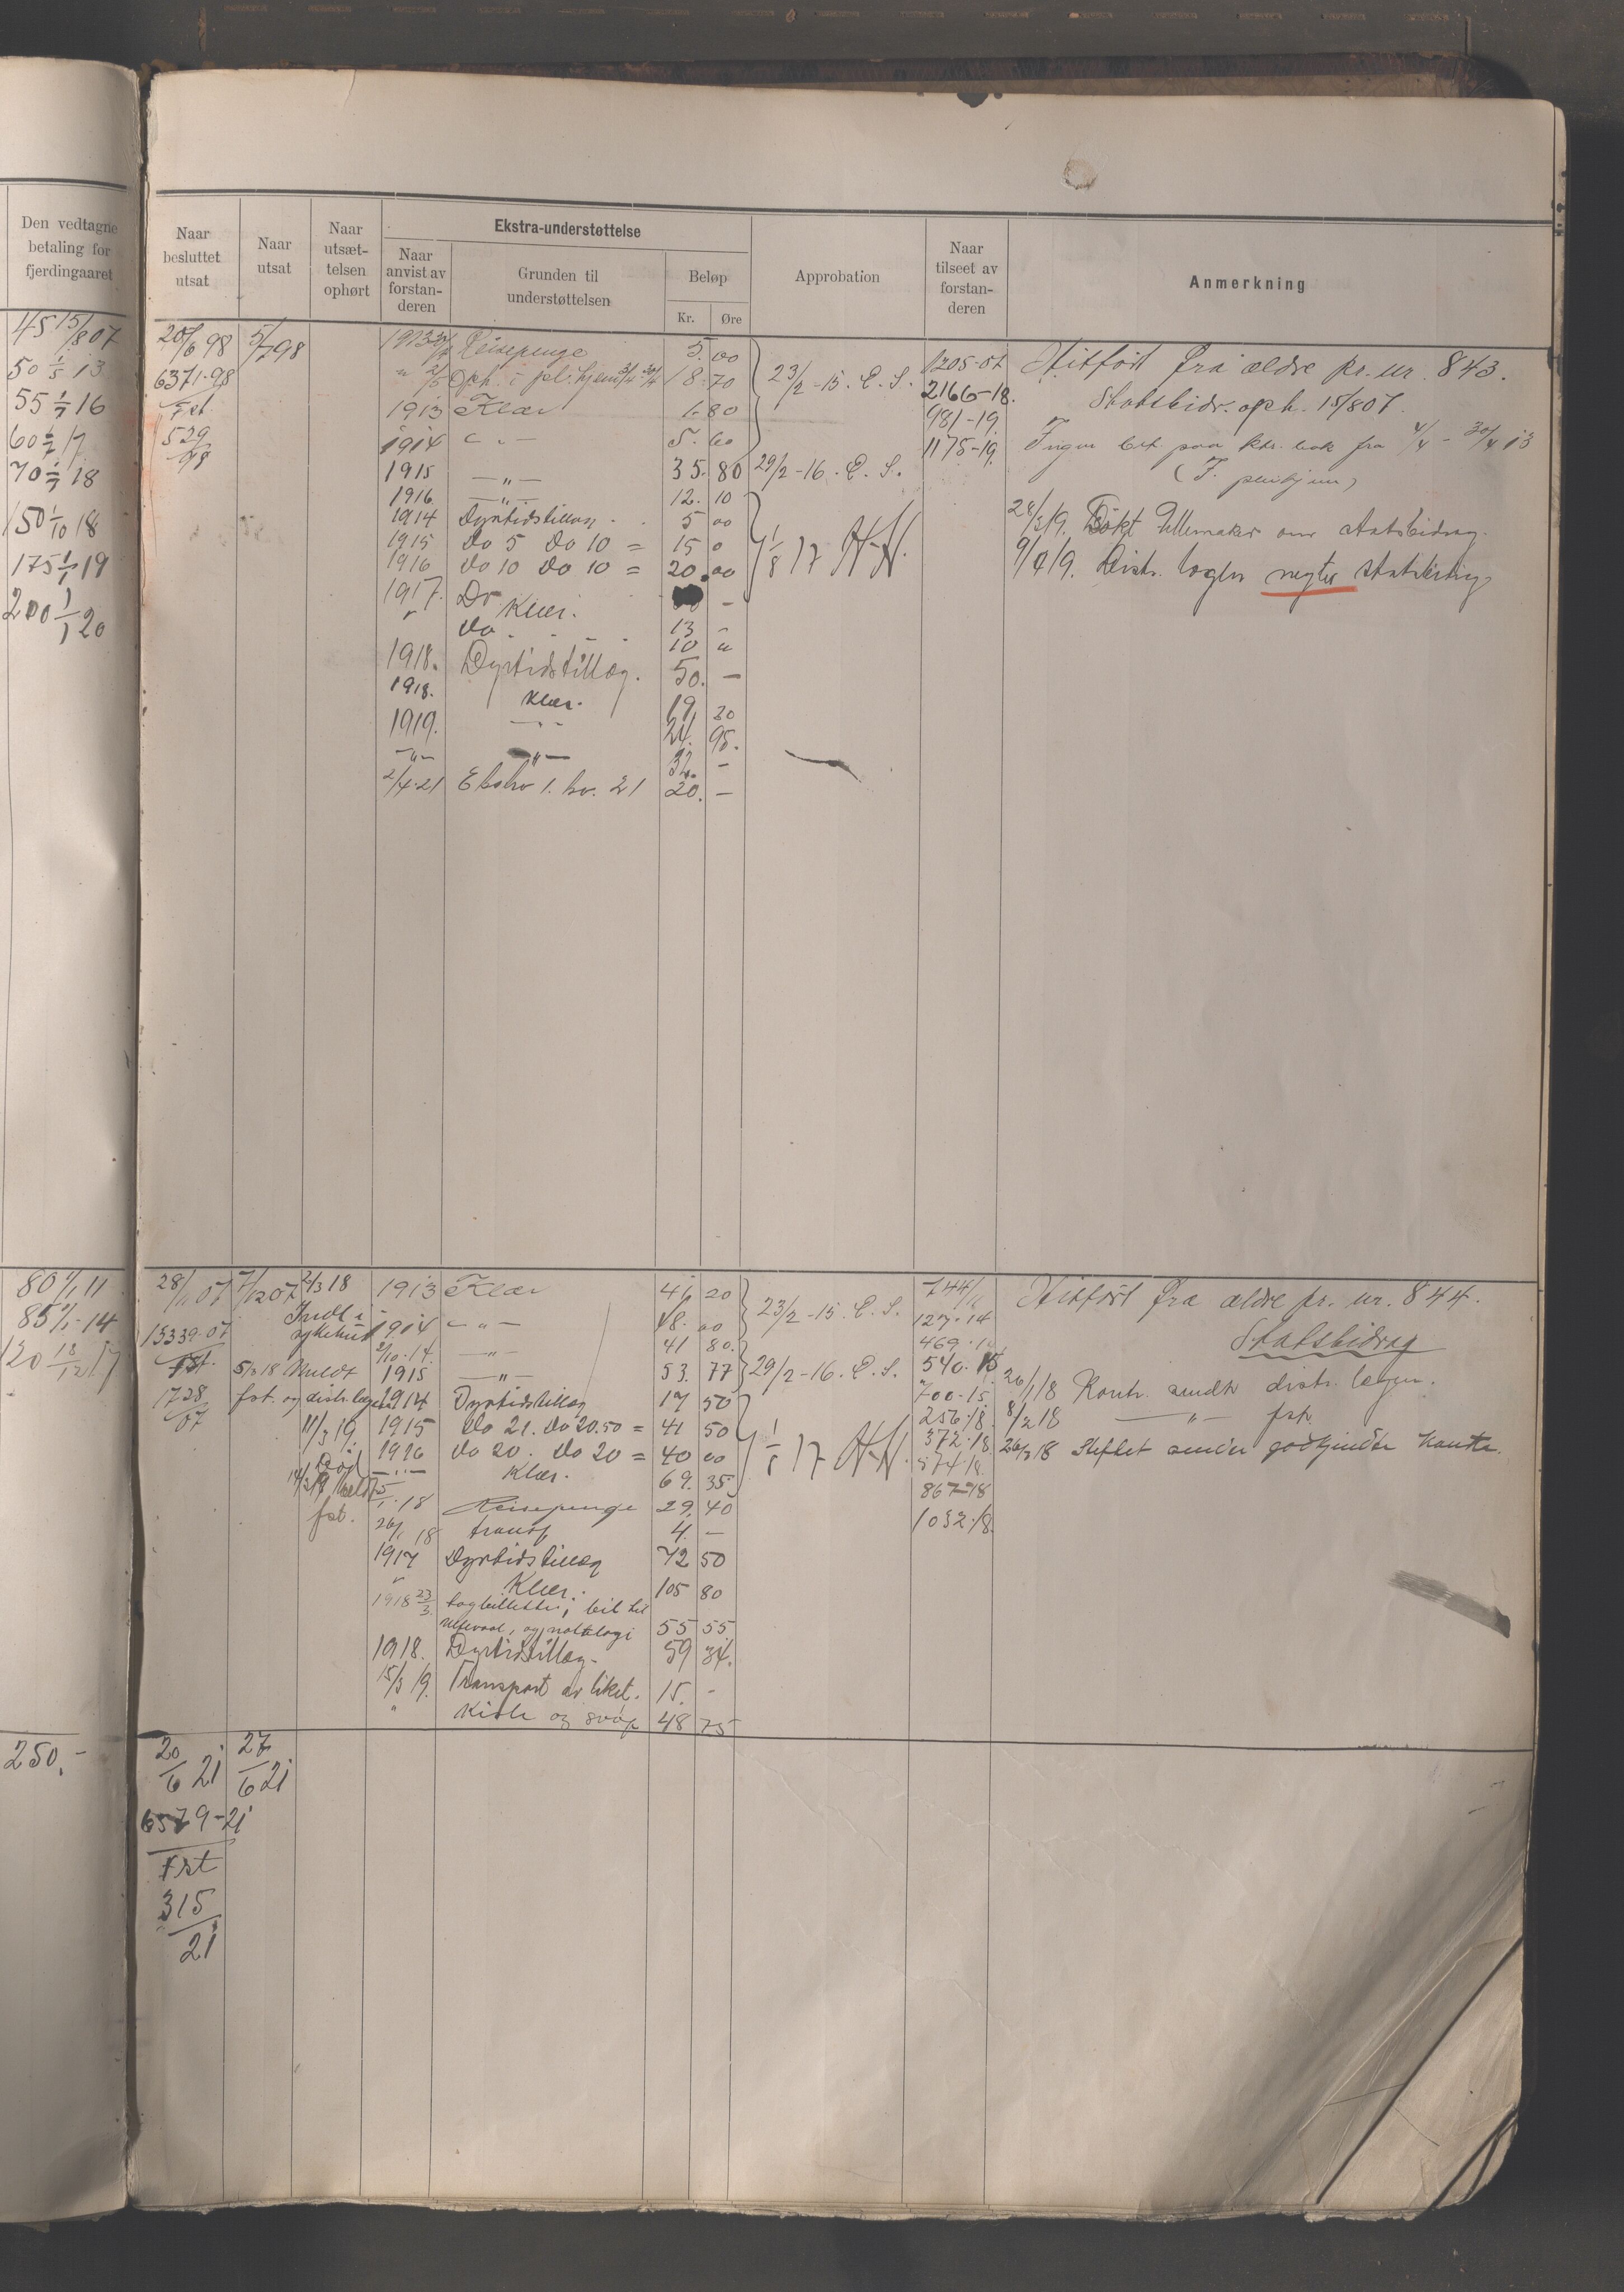 Den vedtagne
betaling for
fjerdingaaret
45 15/8 07
50 1/5 13
55 1/7 16
60 1/7 17
70 1/7 18
150 1/10 18
175 1/1 19
200 1/1 20
80 1/1 11
85 1/1 14
120 18/12 17
250.-
Naar
besluttet
utsat
Naar
utsat
Naar
utsæt-
telsen
ophørt
Ekstra-understøttelse
Naar
anvist av
forstan-
deren
Grunden til
understøttelsen
Beløp
Kr.
Øre
Approbation
Naar
tilseet av
forstan-
deren
Anmerkning
20/6 98
5/7 98
6371-98
Fst.
529
98
1913 Reisepenge 5. 00
Oph. i pl.hjem 18. 70
1913 Klær 1. 80
1914 - " - 5. 60
1915 - " - 35. 80
1916 - " - 12. 10
1914 Dyrtidstillæg 5 00
1915 Do 5 Do 10 = 15 0
1916 Do 10 Do 10 = 20. 00
1917. Do -
" Klær.
Do 13 -
10 "
1918. Dyrtidstillæg. 50. -
1918. Klær. 19.
1919. - " - 24. 95.
- " - - " - 32. -
2/4-21 1. kv. 21 20. -
23/2-15. E. S.
29/2-16. E. S.
1/8 17 H.H.
1205-07
2166-18.
981-19.
1175-19.
Hitført fra ældre pr. nr. 843.
Statsbidr. oph. 15/8 07.
Ingen bet paa fra 4/4 - 30/4 13
28/3 19. Søkt om statsbidrag.
9/4 19. Distr. lægen negter statsbidrag
28/11 07 7/12 07 2/3 18
Indl i
sykehus
13339-07
Fst.
5/3 18 Meldt
fst. og distr. lægen
1728
07
11/3 19.
Død
14/3 19 Meldt
fst.
1913 Klær 41. 20
1914 - " - 48. 00
2/10-14. - " - 41 80.
1915 - " - 53. 77
1914 Dyrtidstillæg 17 50
1915 Do 21. Do 20.50 = 41 50
1916 Do 20. Do 20 = 40 00
- " - Klær. 69. 35
18 Reisepenge 29. 40
26/1 18 transp 4. -
1917 Dyrtidstillæg 72 50
" Klær. 105 80
1918 23/3 togbilletter, bil til
Ullevaal, og nattelogi 55 55
1918. Dyrtidstillæg. 59 34.
15/3 19. Transport av liket. 15. -
" Kiste og svøp 48 75
23/2-15. E. S.
29/2-16. E. S.
1/8 17 H.H.
744/
127-14
469-
540-15
700-15
256-18
372-18
574-18
867-18
1032-18.
Hitført fra ældre pr. nr. 844.
Statsbidrag
26/1 18 Kontr. sendt distr. lægen.
8/2 18 - " - fst.
26/3 18 Heftet sendes godkjendte Kontr.
20/6 21
27/6 21
6579-21
Fst
315
21